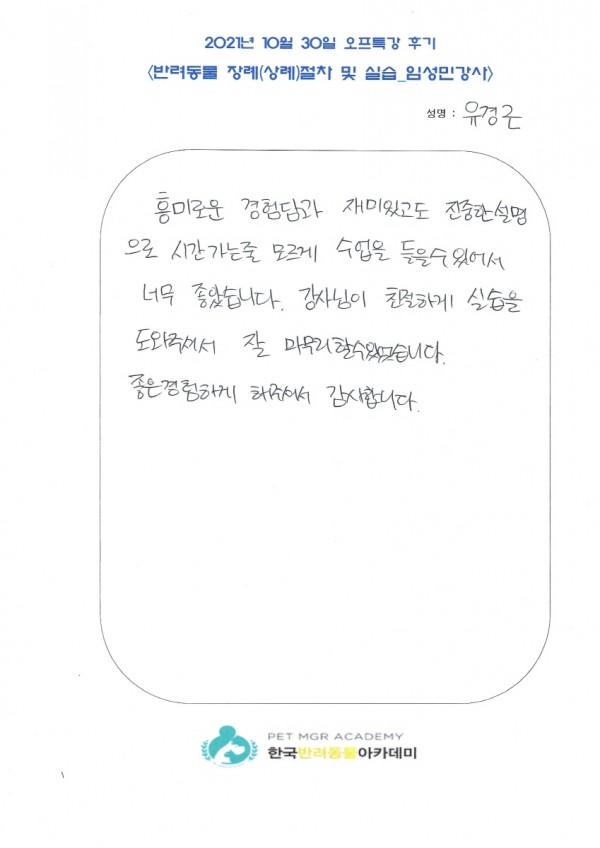 2021년 10월 30일 오프특강 후기
<반려동물 장례(상례)절차 및 실습_임성민강사>
성명 : 유경근
흥미로운 경험담과 재미있고도 진중한 설명
으로 시간가는줄 모르게 수업을 들을수있어서
너무 좋았습니다. 강사님이 친절하게 실습을
도와주셔서 잘 마무리할수있었습니다.
좋은경험하게 해주셔서 감사합니다.
PET MGR ACADEMY
한국반려동물아카데미